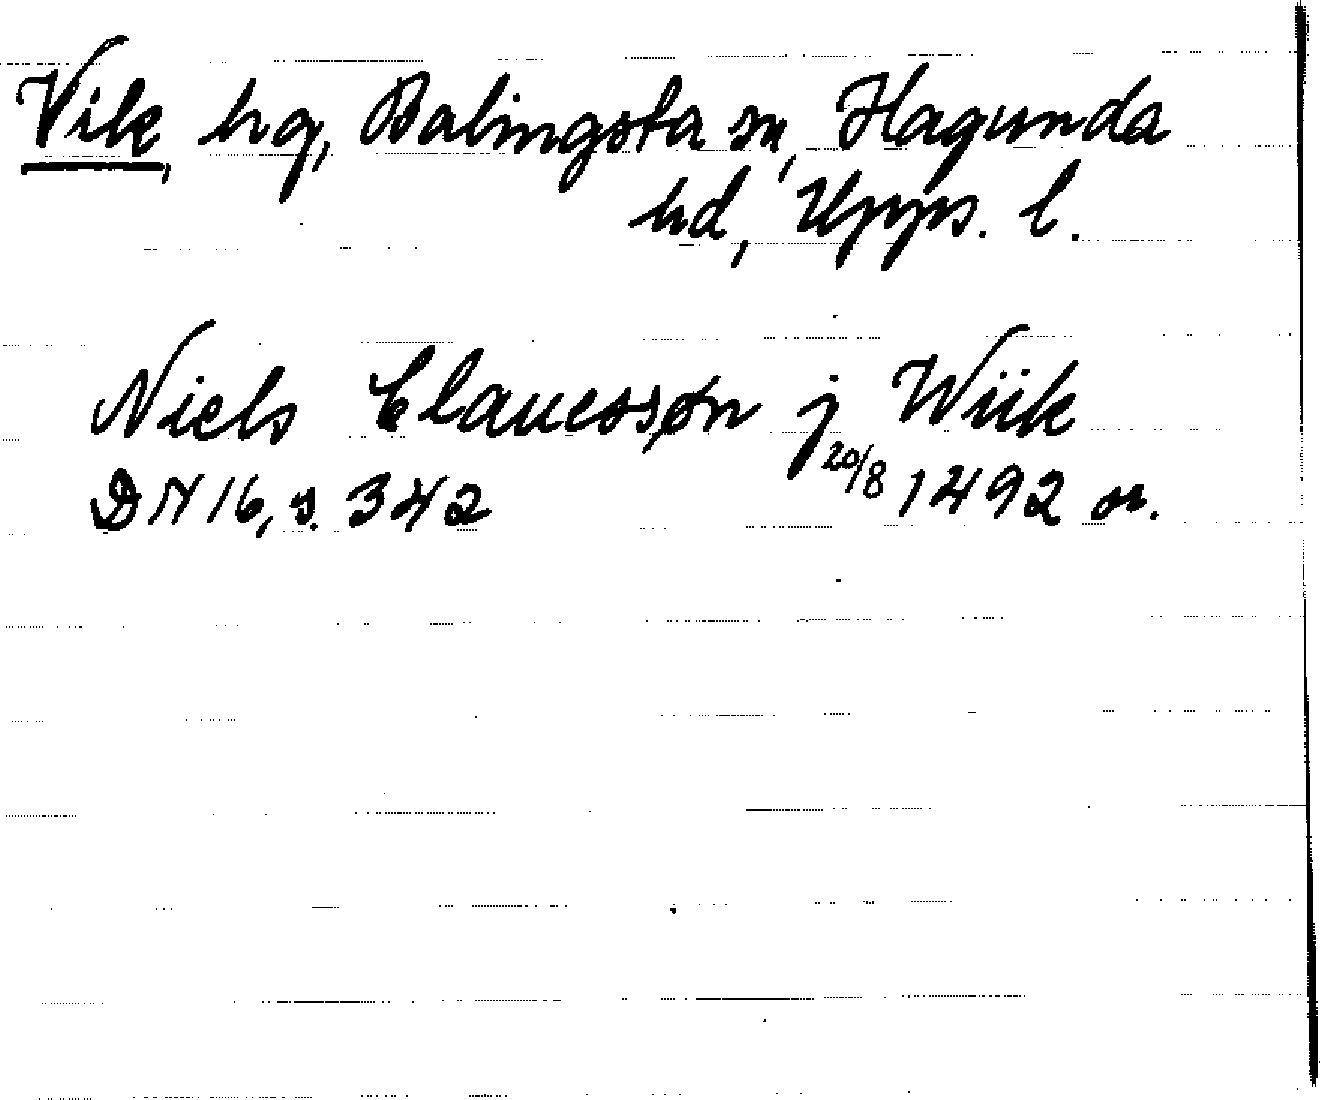 Vik, hg, Balingsta sn, Hagunda
hd, Upps. l.
Niels Clauessøn j Wiik
DN 16, s. 342 20/8 1492 or.